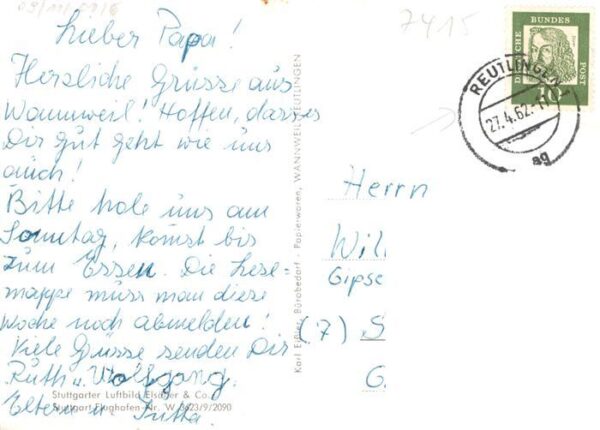 Lieber Papa!
Herzliche Grüsse aus
Wannweil! Hoffen, dass es
Dir gut geht wie uns
auch!
Bitte hole uns am
Sonntag, komst bis
zum Essen. Die Lese-
mappe muss man diese
Woche noch abmelden!
Viele Grüsse senden Dir
Ruth u. Wolfgang.
Eltern u. Jutta.
Stuttgarter Luftbild Elsäßer & Co.
Stuttgart-Flughafen-Nr. W 3623/9/2090
Karl Eißler, Bürobedarf - Papierwaren, WANNWEIL-REUTLINGEN
7415
DEUTSCHE BUNDES POST
10
REUTLINGEN 1
27.4.62.-17
ag
Herrn
Wil
Gipse
(7) S
G